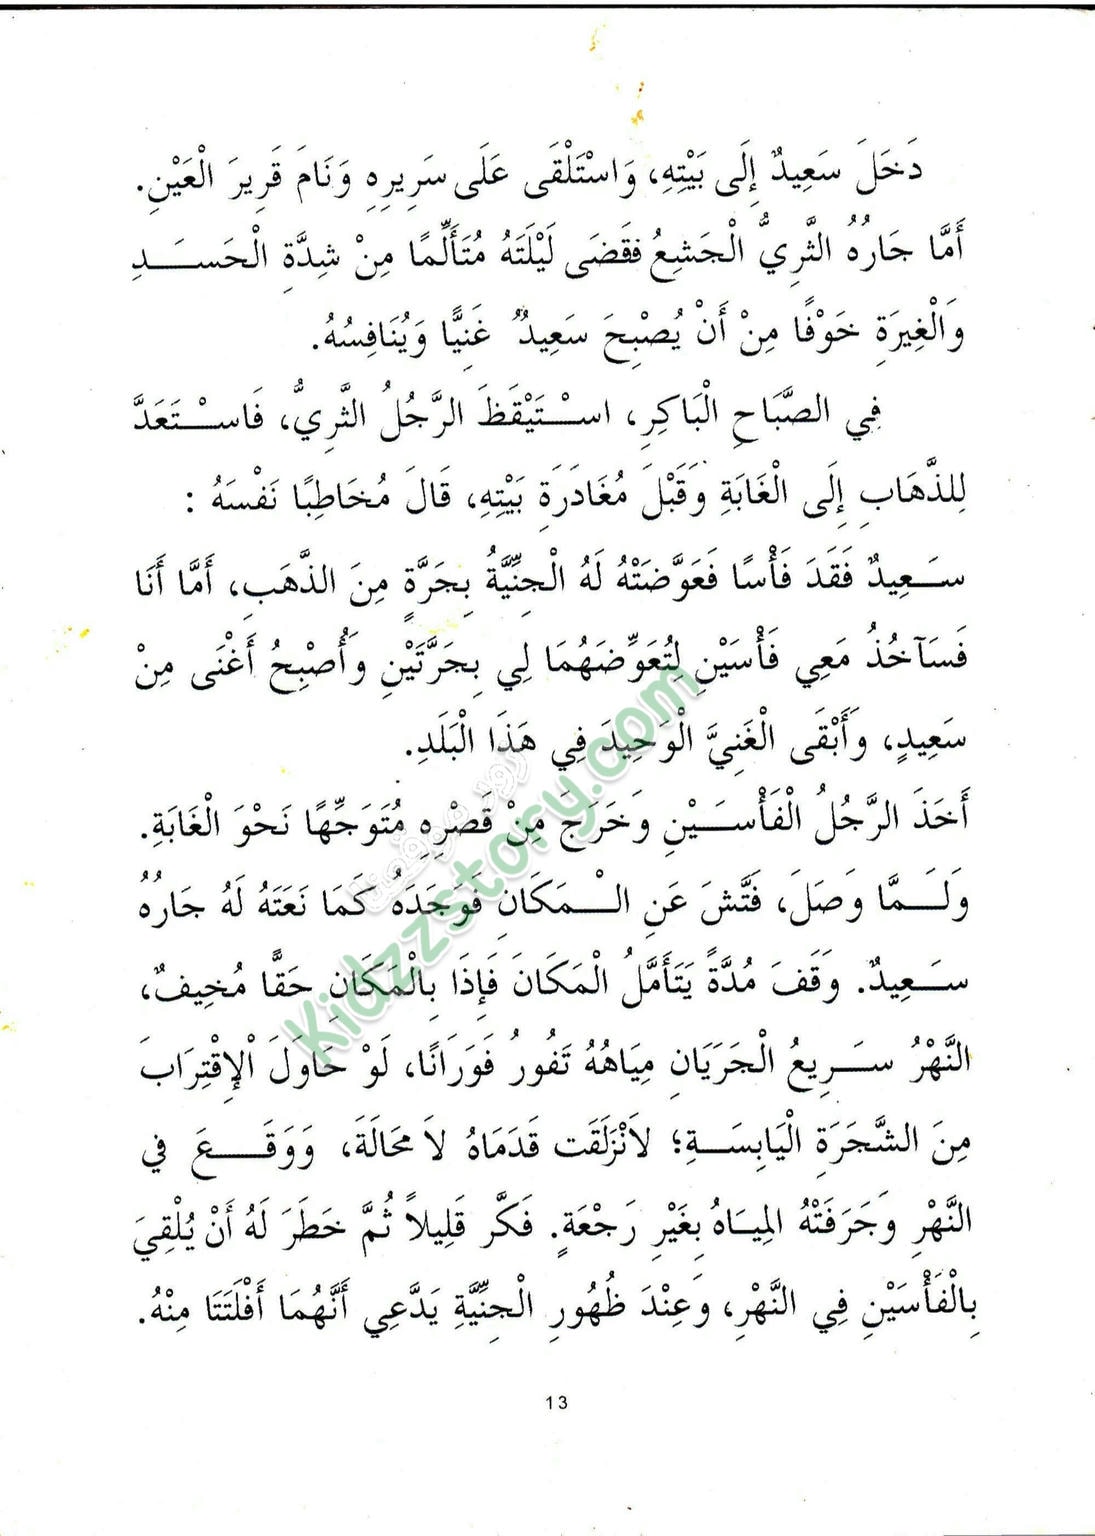 دَخَلَ سَعِيدٌ إِلَى بَيْتِهِ، وَاسْتَلْقَى عَلَى سَرِيرِهِ وَنَامَ قَرِيرَ الْعَيْنِ.
أَمَّا جَارُهُ الثَّرِيُّ الْجَشِعُ فَقَضَى لَيْلَتَهُ مُتَأَلِّمًا مِنْ شِدَّةِ الْحَسَدِ
وَالْغِيرَةِ خَوْفًا مِنْ أَنْ يُصْبِحَ سَعِيدٌ غَنِيًّا وَيُنَافِسُهُ.
فِي الصَّبَاحِ الْبَاكِرِ، اسْتَيْقَظَ الرَّجُلُ الثَّرِيُّ، فَاسْتَعَدَّ
لِلذَّهَابِ إِلَى الْغَابَةِ وَقَبْلَ مُغَادَرَةِ بَيْتِهِ، قَالَ مُخَاطِبًا نَفْسَهُ :
سَعِيدٌ فَقَدَ فَأْسًا فَعَوَّضَتْهُ لَهُ الْجِنِّيَّةُ بِجَرَّةٍ مِنَ الذَّهَبِ، أَمَّا أَنَا
فَسَآخُذُ مَعِي فَأْسَيْنِ لِتُعَوِّضَهُمَا لِي بِجَرَّتَيْنِ وَأُصْبِحُ أَغْنَى مِنْ
سَعِيدٍ، وَأَبْقَى الْغَنِيَّ الْوَحِيدَ فِي هَذَا الْبَلَدِ.
أَخَذَ الرَّجُلُ الْفَأْسَيْنِ وَخَرَجَ مِنْ قَصْرِهِ مُتَوَجِّهًا نَحْوَ الْغَابَةِ.
وَلَمَّا وَصَلَ، فَتَّشَ عَنِ الْمَكَانِ فَوَجَدَهُ كَمَا نَعَتَهُ لَهُ جَارُهُ
سَعِيدٌ. وَقَفَ مُدَّةً يَتَأَمَّلُ الْمَكَانَ فَإِذَا بِالْمَكَانِ حَقًّا مُخِيفٌ،
النَّهْرُ سَرِيعُ الْجَرَيَانِ مِيَاهُهُ تَفُورُ فَوَرَانًا، لَوْ حَاوَلَ الْإِقْتِرَابَ
مِنَ الشَّجَرَةِ الْيَابِسَةِ؛ لاَنْزَلَقَت قَدَمَاهُ لاَ مَحَالَةَ، وَوَقَعَ في
النَّهْرِ وَجَرَفَتْهُ المِيَاهُ بِغَيْرِ رَجْعَةٍ. فَكَّر قَلِيلاً ثُمَّ خَطَرَ لَهُ أَنْ يُلْقِيَ
بِالْفَأْسَيْنِ فِي النَّهْرِ، وَعِنْدَ ظُهُورِ الْجِنِّيَّةِ يَدَّعِي أَنَّهُمَا أَفْلَتَتَا مِنْهُ.
Kidzzstory.com
13